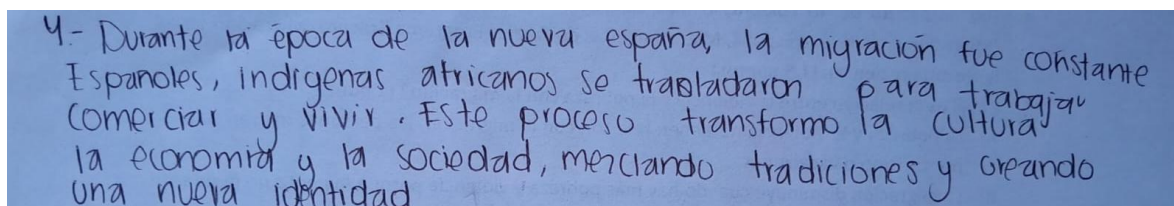 4.- Durante la época de la nueva españa, la migración fue constante
Españoles, indígenas africanos se trasladaron para trabajar
comerciar y vivir. Este proceso transformo la cultura
la economía y la sociedad, mezclando tradiciones y creando
una nueva identidad